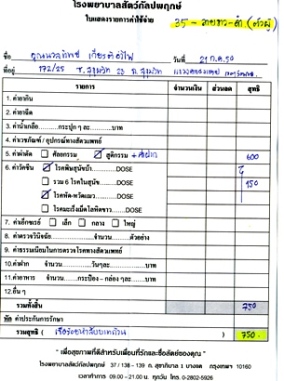 โรงพยาบาลสัตว์กัลปพฤกษ์
ใบแสดงรายการค่าใช้จ่าย
35 - ลายขาว-ดำ (ตัวผู้)
ชื่อ
วันที่ 21 ก.ค. 50
ที่อยู่ 172/25 ซ.สุขุมวิท 23 ถ.สุขุมวิท
รายการ จำนวนเงิน ส่วนลด สุทธิ
1. ค่ายากิน
2. ค่ายาฉีด
3. ค่าน้ำเกลือ..........กระปุก ๆ ละ..........บาท
4. ค่าเวชภัณฑ์ / อุปกรณ์ทางสัตวแพทย์
5. ค่าผ่าตัด ศัลยกรรม สูติกรรม 600
6. ค่าวัคซีน โรคพิษสุนัขบ้า..........DOSE
รวม 6 โรคในสุนัข..........DOSE 150
โรคหัด-หวัดแมว..........DOSE
โรคมะเร็งเม็ดโลหิตขาว..........DOSE
7. ค่าเอ็กซเรย์ เล็ก กลาง ใหญ่
8. ค่าตรวจวินิจฉัย..........จำนวน..........ตัวอย่าง
9. ค่าธรรมเนียมในการตรวจโรคทางสัตวแพทย์
10. ค่าฝาก จำนวน..........วันๆละ..........บาท
11. ค่าอาหาร จำนวน..........กระป๋อง - กล่องๆละ..........บาท
12. อื่น ๆ
รวมทั้งสิ้น 750
หัก ค่าประกันการรักษา
รวมสุทธิ ( เจ็ดร้อยห้าสิบบาทถ้วน ) 750.-
" เพื่อสุขภาพที่ดีสำหรับเพื่อนที่รักและซื่อสัตย์ของคุณ "
โรงพยาบาลสัตว์กัลปพฤกษ์ 37 / 138 - 139 ถ. กรุงเทพฯ 10160
เวลาทำการ 09.00 - 21.00 น. ทุกวัน โทร. 0-2802-5926